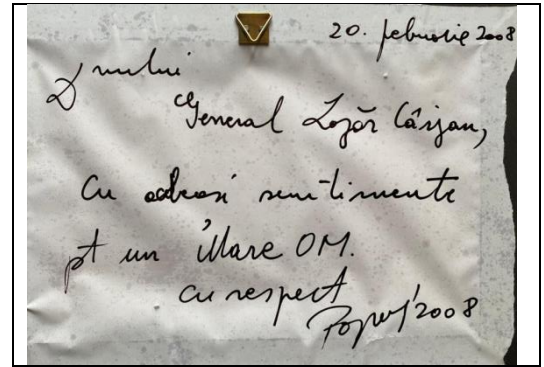 20. februarie 2008
D'nului
General Lazăr Cârjan,
Cu adeasi sentimente
pt un Mare OM.
cu respect
2008